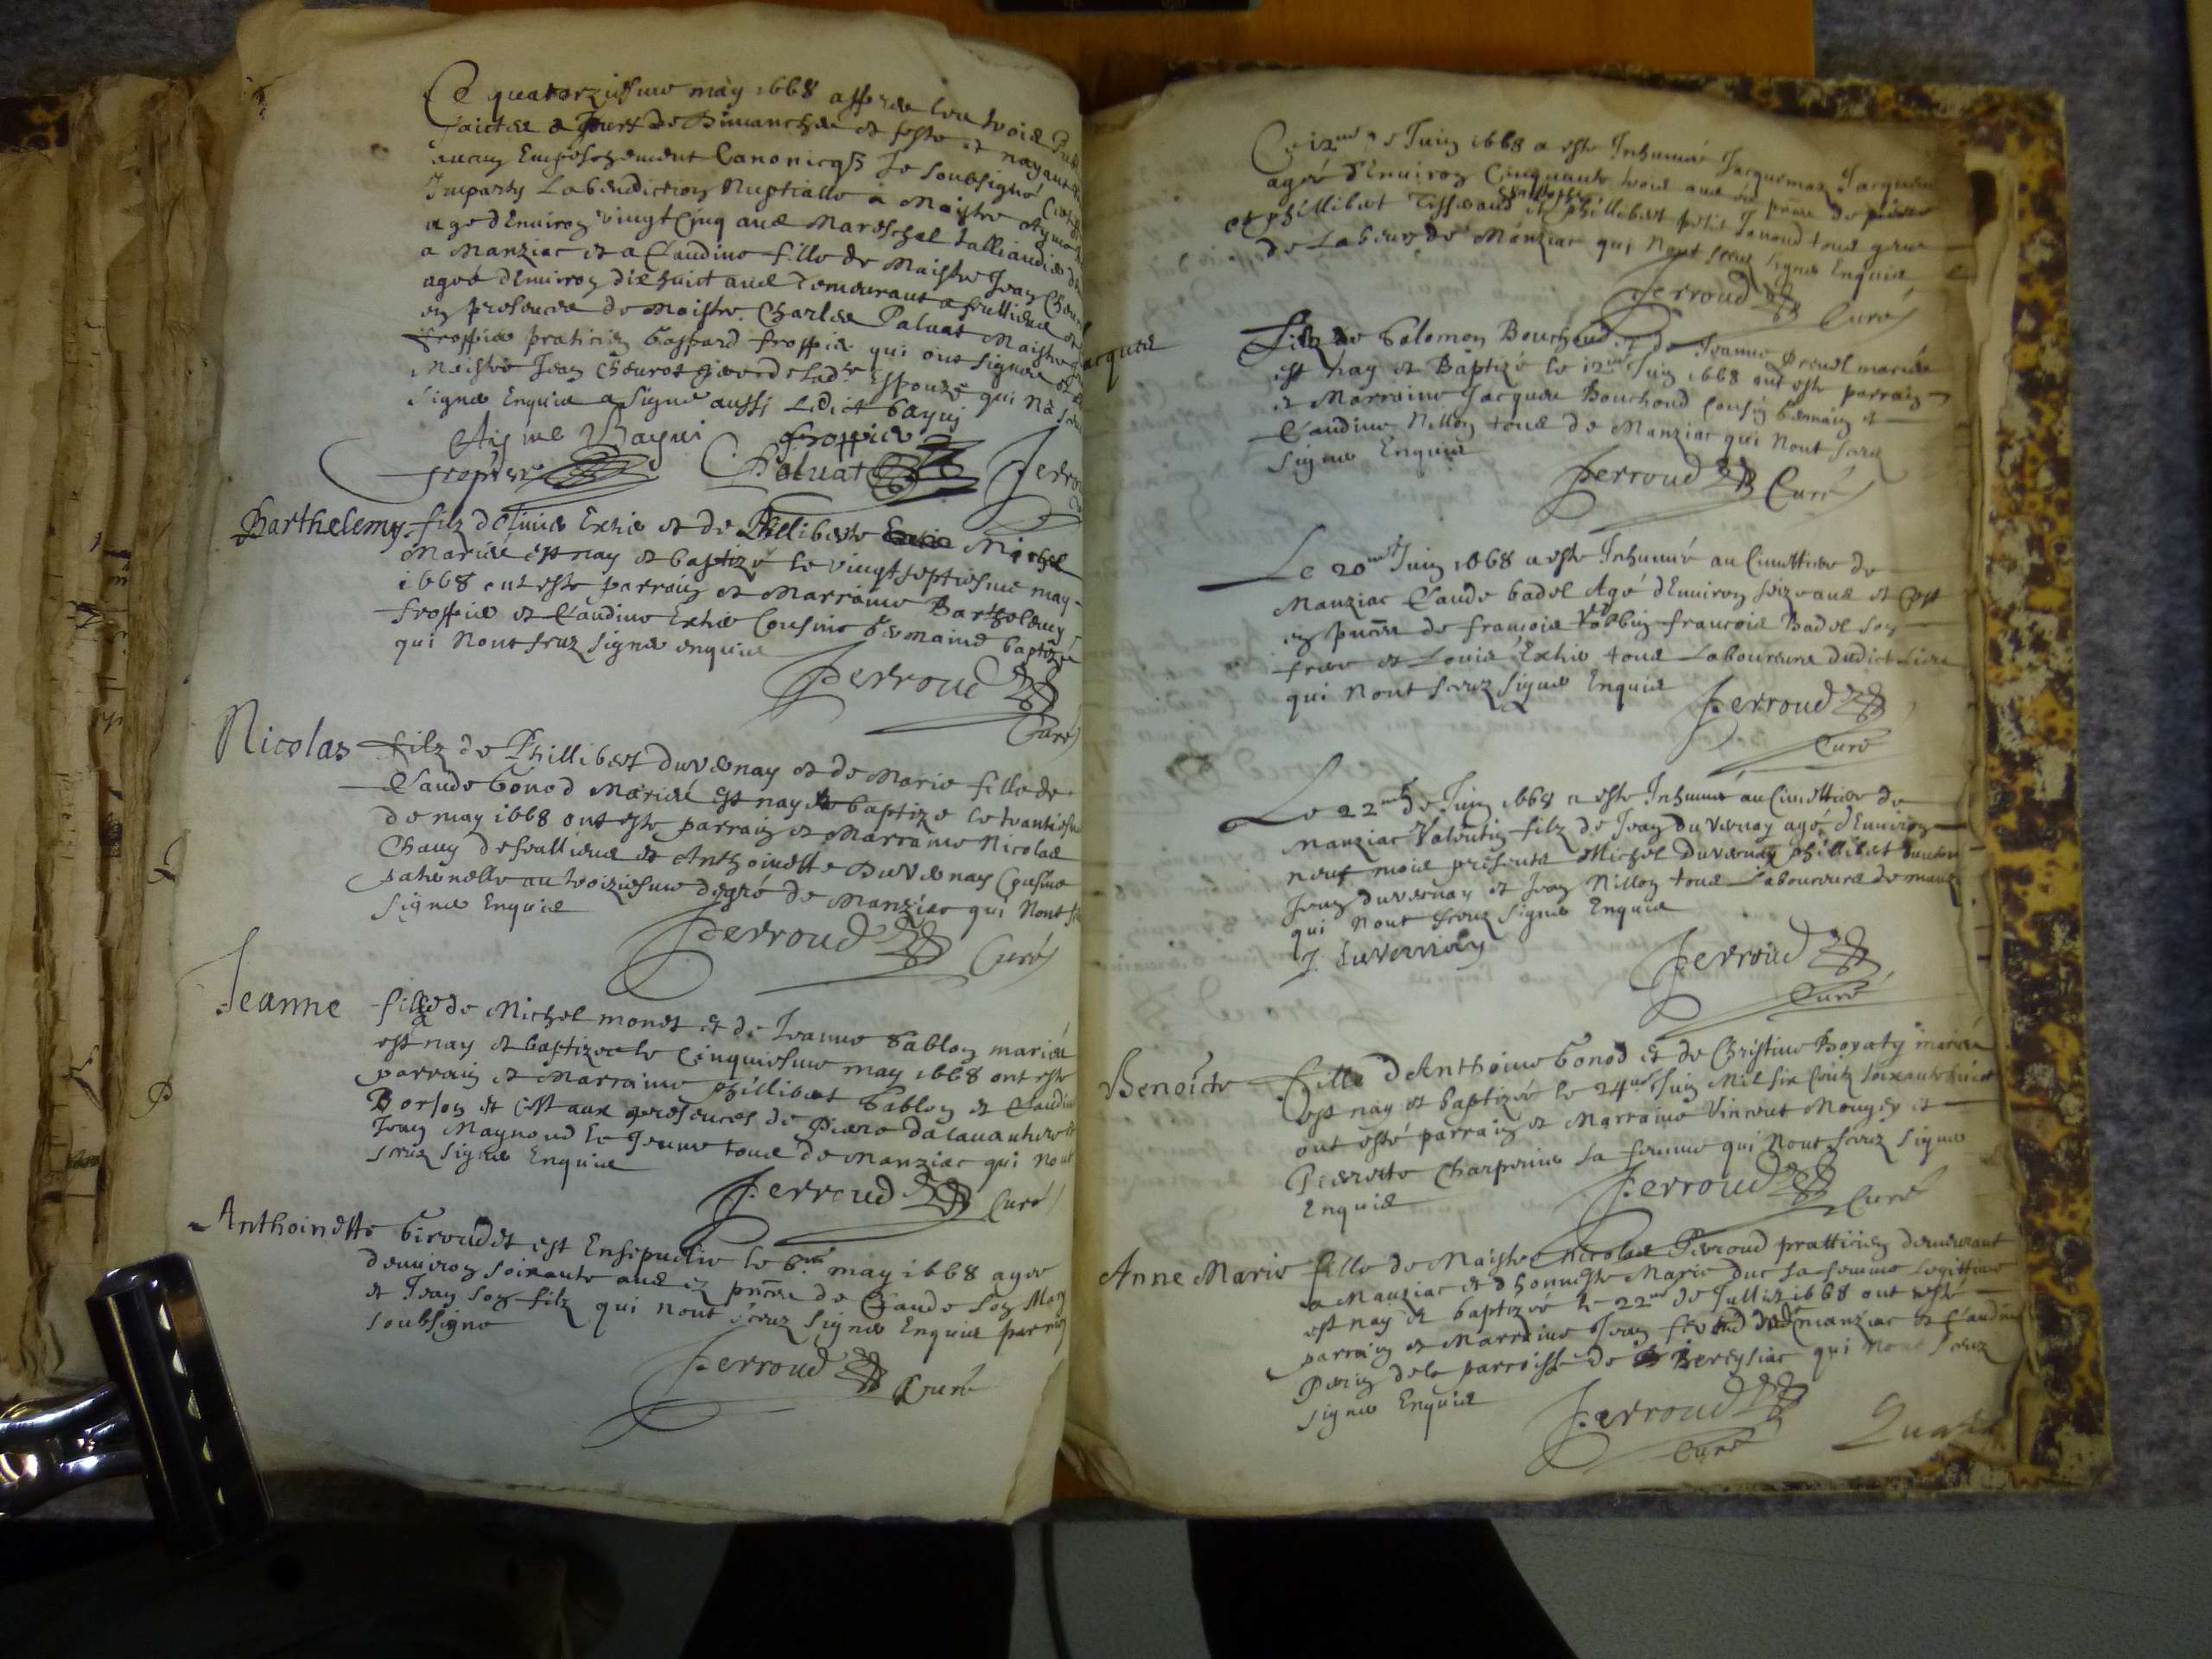 Ce quatorziesme may 1668 appres les trois
faictes a Jours de dimanches et feste et nayant
aucun Empeschement Canonicqz Je soubsigné Curé
Imparty La benediction Nuptialle a Maistre Aymé
agé dEnviron vingt Cinq ans Mareschal talliandier
a Manziac et a Claudine fille de Maistre Jean
agée dEnviron dixhuict ans demeurant a feilliens
en presences de Maistre Charles Paluat Maistre
froppier praticien Gaspard froppier qui ont signés et
Maistre Jean de lad.te Espouze qui Na sceu
signer Enquis a signé aussi Ledict bayni
Aigme Bayni froppier
fropier Paluat Perroud
Barthelemy filz dOlivier Exhie et de Phillibarte Michel
Mariés est nay et baptizé le vingt septiesme may
1668 ont esté parrain et Marraine Barthelemy
froppier et Claudine Exhie Cousins Germains baptizé
qui Nont sceuz signer enquis
Perroud
Curé
Nicolas filz de Phillibert duvernay et de Marie fille de
Claude Gonod Mariés Est nay et baptizé le trantiesme
de may 1668 ont esté parrain et Marraine Nicolas
Chany de feallieus et Anthoinette Duvernay Cousine
paternelle au troiziesme degré de Manziac qui Nont
signer Enquis
Perroud Curé
Jeanne fille de Michel monet et de Jeanne Sablon mariés
est nay et baptizée le Cinquiesme may 1668 ont esté
parrain et Marraine phillibert Sablon et Claudine
Borjon et Cest aux presences de Pierre
Jean Maynoud le Jeune tous de Manziac qui Nont
sceuz signer Enquis
Perroud Curé
Anthoinette Giroudet est Ensepvelie le 6.me may 1668 agee
denviron soixante ans en pnce de Claude son Mary
et Jean son filz qui nont sceuz signer Enquis par moy
soubsigné
Perroud Curé
Ce 12me de Juin 1668 a esté Inhumé Jacquemaz
agée dEnviron Cinquante trois ans en pnce de pierre
et phillibert Tisserand et phillibert petit Janoud tous gens
de Labeurs de Manziac qui Nont sceuz signer Enquis
Perroud Curé
Jacques
Filz de Salomon Bouchoud et de Jeanne mariés
est nay et Baptizé le 12me Juin 1668 ont esté parrain
et Marraine Jacques Bouchoud Cousin Germain et
Claudine Nillon tous de Manziac qui Nont sceuz
signer Enquis
Perroud Curé
Le 20me Juin 1668 a esté Inhumé au Cimettiere de
Manziac Claude badel Agé dEnviron seize ans et Cest
en pnces de françois Robbin francois Badel son
frere et Louis Exhie tous Laboureurs dudict Lieu
qui Nont sceuz signer Enquis
Perroud
Curé
Le 22me de Juin 1668 a esté Inhumé au Cimettiere de
Manziac Valentin filz de Jean du Vernay agé dEnviron
neuf mois presents Michel Duvernay phillibert
Jean duvernay et Jean Nillon tous Laboureurs de manz
qui Nont sceuz signer Enquis
J. duvernay
Perroud
Curé
Benoiste fille dAnthoine Gonod et de Christine Boyaty mariés
est nay et baptizée le 24me Juin Mil six Centz soixante huict
ont esté parrain et Marraine Vincent Mongey et
Pierrette Charpenie sa femme qui Nont sceuz signer
Enquis
Perroud Curé
Anne Marie fille de Maistre Nicolas Perroud pratticien demeurant
a Manziac et dhonneste Marie Duc sa femme Legittime
est nay et baptizée le 22me de Jullet 1668 ont esté
parrain et Marraine Jean manziac et Claudine
Perin de la parroisse de Bereysiac qui Nont sceuz
signer Enquis
Perroud
Curé